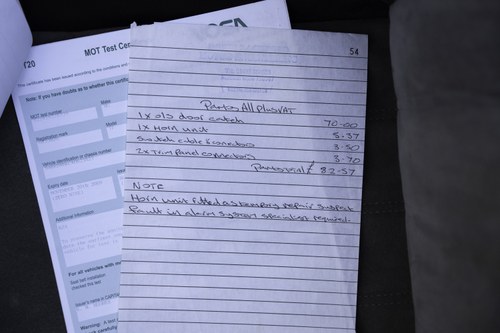 MOT Test Cer
/20
This certificate has been issued according to the conditions and
Note: If you have doubts as to whether this certific
MOT test number
Make
Registration mark
Model
Vehicle identification or chassis number
Expiry date
Additional information
For all vehicles with
Seat belt installation
checked this test
Warning: A test
54
Parts All Plus VAT
1x o/s door catch 70-00
1x Horn unit 5-37
Switch cable & connectors 3-50
2x Trim panel connectors 3-70
Parts total £ 82-57
NOTE
Horn unit fitted as temporary repair suspect
fault in alarm system specialist required.